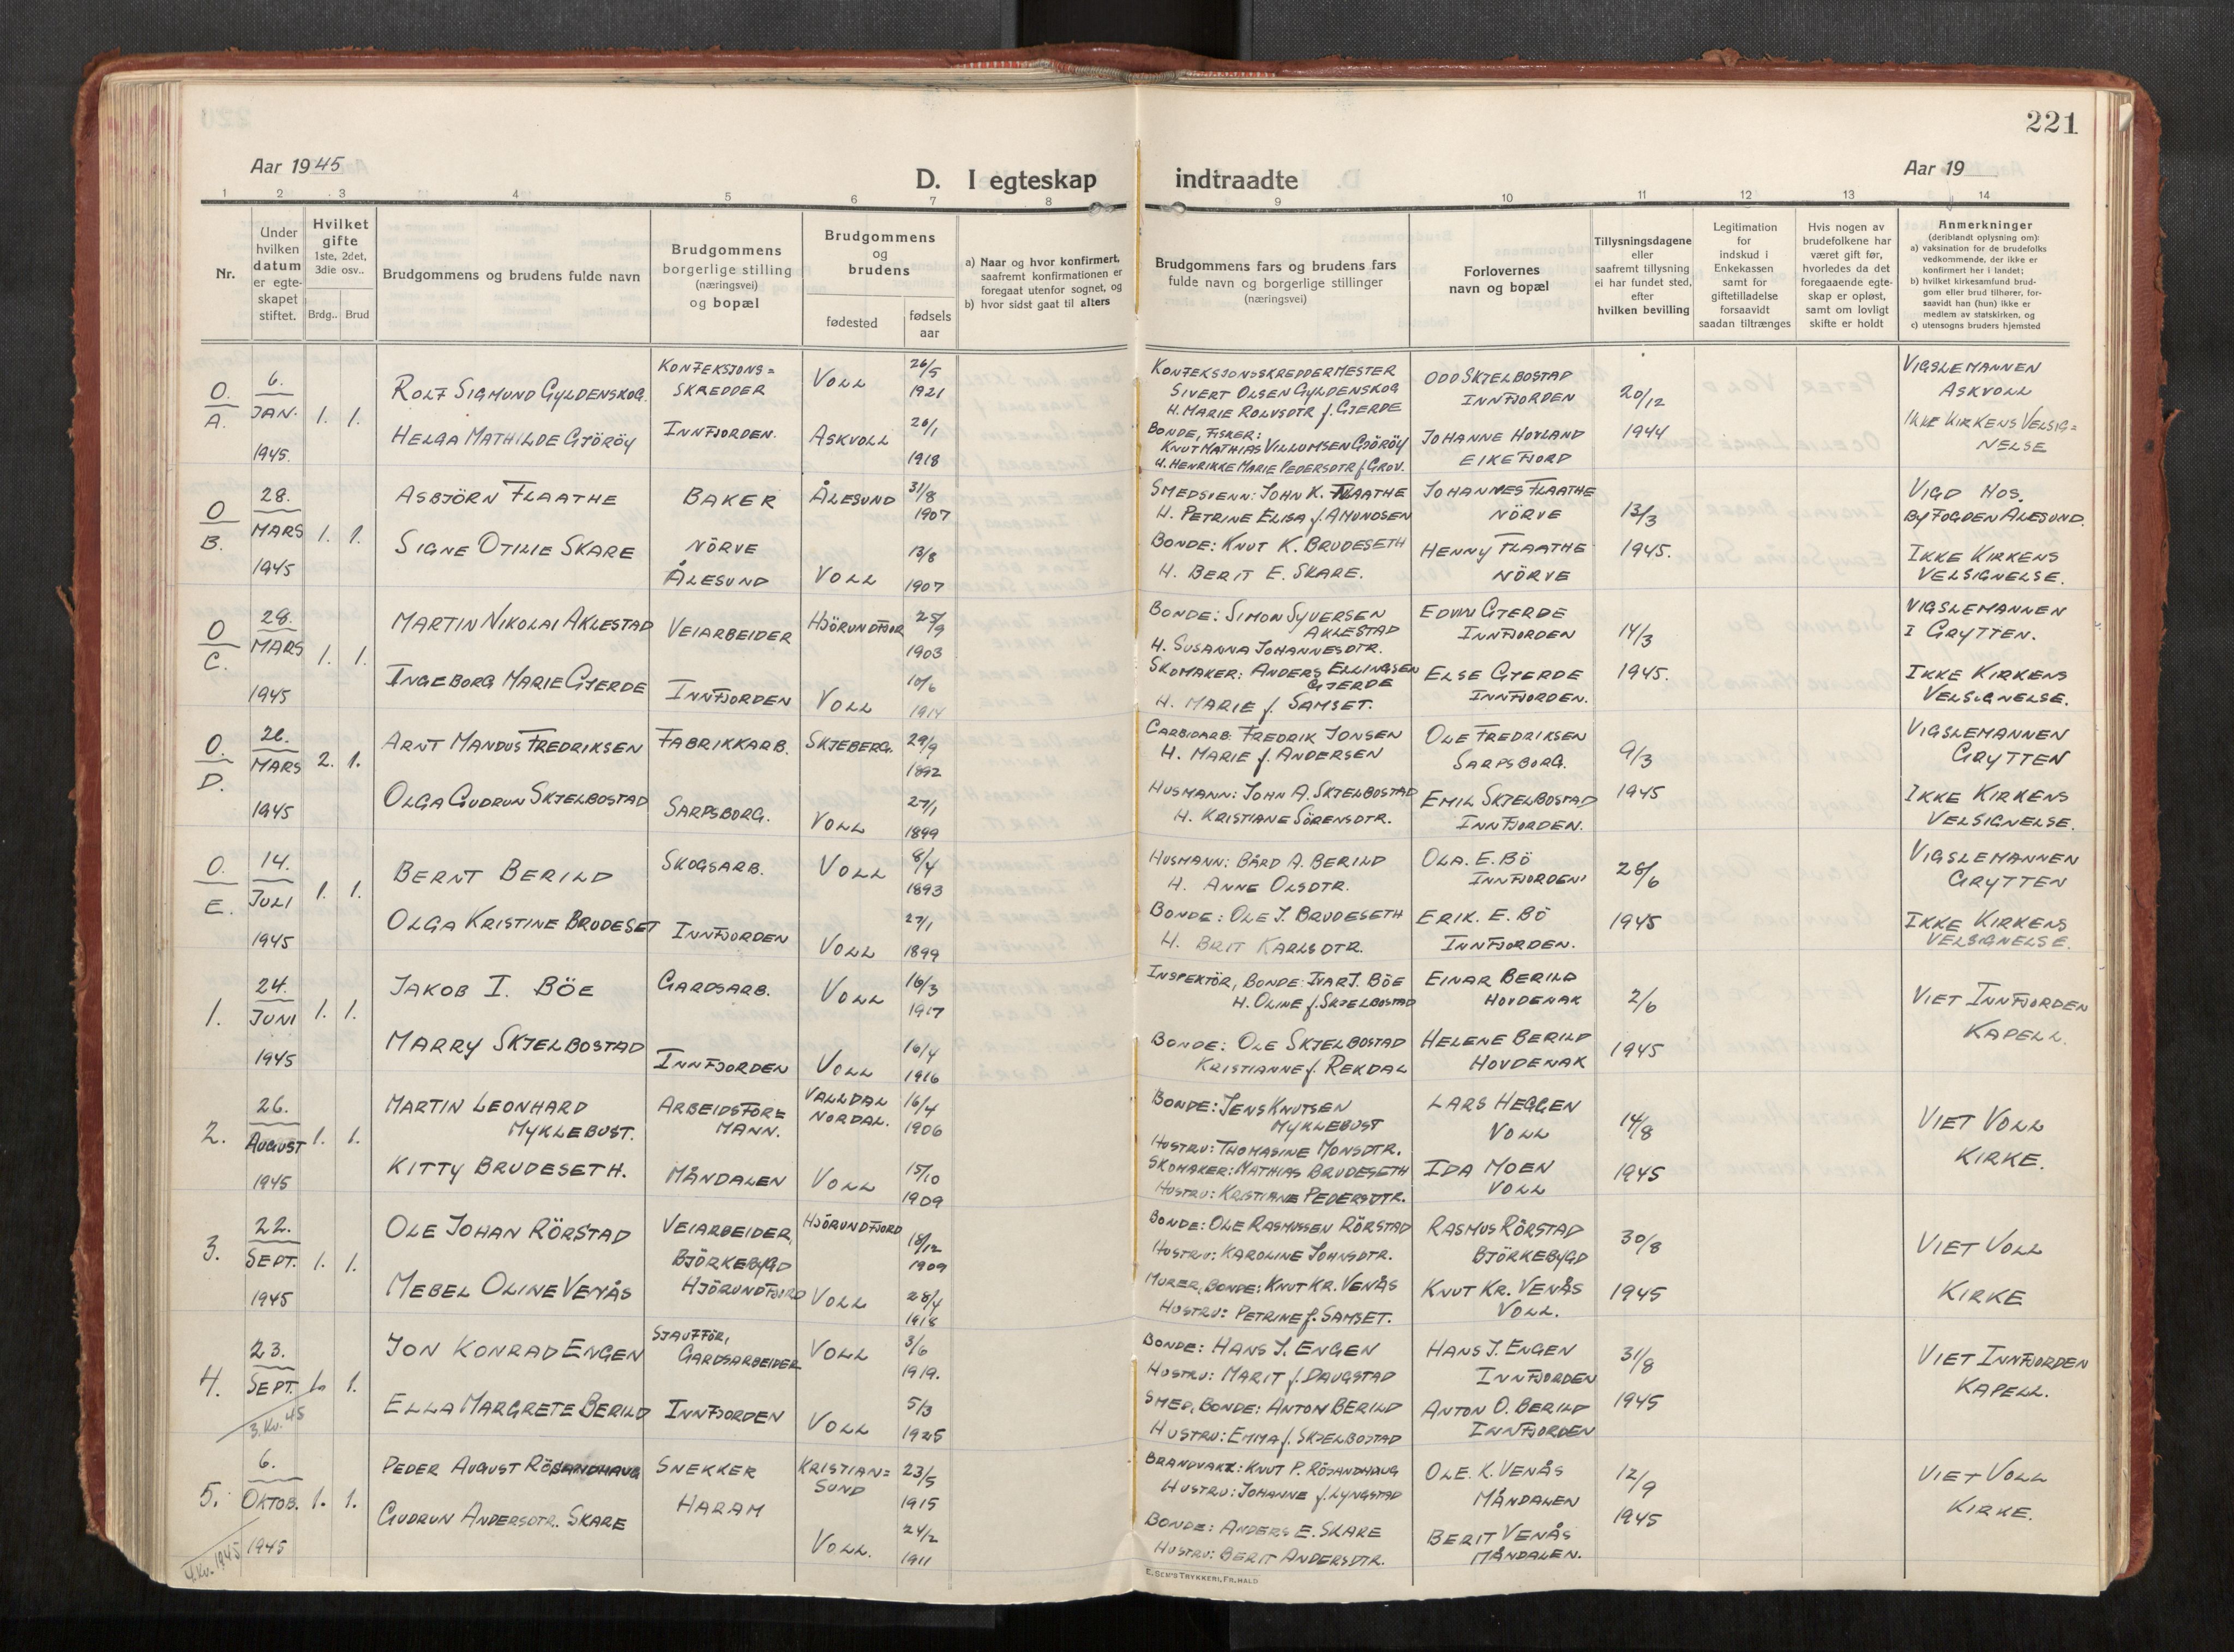 221
Aar 1945
D. I egteskap indtraadte
Aar 19
1 2 3 4 5 6 7 8 9 10 11 12 13 14
Nr.
Under hvilken datum er egte-skapet stiftet.
Hvilket gifte 1ste, 2det, 3die osv..
Brdg.. Brud
Brudgommens og brudens fulde navn
Brudgommens borgerlige stilling (næringsvei) og bopæl
Brudgommens og brudens
fødested
fødsels aar
a) Naar og hvor konfirmert, saafremt konfirmationen er foregaat utenfor sognet, og
b) hvor sidst gaat til alters
Brudgommens fars og brudens fars fulde navn og borgerlige stillinger (næringsvei)
Forlovernes navn og bopæl
Tillysningsdagene eller saafremt tillysning ei har fundet sted, efter hvilken bevilling
Legitimation for indskud i Enkekassen samt for giftetilladelse forsaavidt saadan tiltrænges
Hvis nogen av brudefolkene har været gift før, hvorledes da det foregaaende egte-skap er opløst, samt om lovligt skifte er holdt
Anmerkninger (deriblandt oplysning om):
a) vaksination for de brudefolks vedkommende, der ikke er konfirmert her i landet;
b) hvilket kirkesamfund brud-gom eller brud tilhører, for-saavidt han (hun) ikke er medlem av statskirken, og
c) utensogns bruders hjemsted
O. A.
6. JAN. 1945.
1. 1.
ROLF SIGMUND GYLDENSKOG.
HELGA MATHILDE GJÖRÖY
KONFEKSJONS= SKREDDER
INNFJORDEN.
VOLL 26/5 1921
ASKVOLL 26/1 1918
KONFEKSJONSSKREDDERMESTER
SIVERT OLSEN GYLDENSKOG
H. MARIE ROLVSDTR f. GJERDE
BONDE, FISKER:
KNUT MATHIAS VILLUMSEN GJÖRÖY
H. HENRIKKE MARIE PEDERSDTR f. GROV.
ODD SKJELBOSTAD
INNFJORDEN
JOHANNE HOVLAND
EIKEFJORD
20/12
1944
VIGSLEMANNEN
ASKVOLL
IKKE KIRKENS VELSIG=
NELSE
O B.
28. MARS 1945
1. 1.
ASBJÖRN FLAATHE
SIGNE OTILIE SKARE
BAKER
NÖRVE
ÅLESUND
ÅLESUND 31/8 1907
VOLL 13/8 1907
SMEDSVENN: JOHN K. FLAATHE
H. PETRINE ELISA f. AMUNDSEN
BONDE: KNUT K. BRUDESETH
H. BERIT E. SKARE.
JOHANNES FLAATHE
NÖRVE
HENNY FLAATHE
NÖRVE
13/3
1945.
VIGD HOS.
BYFOGDEN ÅLESUND.
IKKE KIRKENS
VELSIGNELSE.
O C.
28. MARS 1945
1. 1.
MARTIN NIKOLAI AKLESTAD
INGEBORG MARIE GJERDE
VEIARBEIDER
INNFJORDEN
HJÖRUNDFJOR 25/9 1903
VOLL 10/6 1914
BONDE: SIMON SYVERSEN
AKLESTAD
H. SUSANNA JOHANNESDTR.
SKOMAKER: ANDERS ELLINGSEN
GJERDE
H. MARIE f. SAMSET.
EDVIN GJERDE
INNFJORDEN
ELSE GJERDE
INNFJORDEN.
14/3
1945.
VIGSLEMANNEN
I GRYTTEN.
IKKE KIRKENS
VELSIGNELSE.
O. D.
26. MARS 1945
2. 1.
ARNT MANDUS FREDRIKSEN
OLGA GUDRUN SKJELBOSTAD
FABRIKKARB.
SARPSBORG.
SKJEBERG. 29/9 1892
VOLL 27/1 1899
CARBIDARB. FREDRIK JONSEN
H. MARIE f. ANDERSEN
HUSMANN: JOHN A. SKJELBOSTAD
H. KRISTIANE SÖRENSDTR.
OLE FREDRIKSEN
SARPSBORG.
EMIL SKJELBOSTAD
INNFJORDEN.
9/3
1945
VIGSLEMANNEN
GRYTTEN
IKKE KIRKENS
VELSIGNELSE.
O. E.
14. JULI 1945
1. 1.
BERNT BERILD
OLGA KRISTINE BRUDESET
SKOGSARB.
INNFJORDEN
VOLL 8/4 1893
VOLL 27/1 1899
HUSMANN: BÅRD A. BERILD
H. ANNE OLSDTR.
BONDE: OLE J. BRUDESETH
H. BRIT KARLSDTR.
OLA. E. BÖ
INNFJORDEN
ERIK. E. BÖ
INNFJORDEN.
28/6
1945
VIGSLEMANNEN
GRYTTEN
IKKE KIRKENS
VELSIGNELSE.
1.
24. JUNI 1945
1. 1.
JAKOB I. BÖE
MARRY SKJELBOSTAD
GARDSARB.
INNFJORDEN
VOLL 16/3 1917
VOLL 16/4 1916
INSPEKTÖR, BONDE: IVAR J. BÖE
H. OLINE f. SKJELBOSTAD
BONDE: OLE SKJELBOSTAD
KRISTIANNE f. REKDAL
EINAR BERILD
HOVDENAK
HELENE BERILD
HOVDENAK
2/6
1945
VIET INNFJORDEN
KAPELL.
2.
26. AUGUST 1945
1. 1.
MARTIN LEONHARD
MYKLEBUST.
KITTY BRUDESETH.
ARBEIDSFOR=
MANN.
MÅNDALEN
VALLDAL NORDAL. 16/4 1906
VOLL 15/10 1909
BONDE: JENS KNUTSEN
MYKLEBUST
HUSTRU: THOMASINE MONSDTR.
SKOMAKER: MATHIAS BRUDESETH
HUSTRU: KRISTIANE PEDERSDTR.
LARS HEGGEN
VOLL
IDA MOEN
VOLL
14/8
1945
VIET VOLL
KIRKE.
3.
22. SEPT. 1945
1. 1.
OLE JOHAN RÖRSTAD
MEBEL OLINE VENÅS
VEIARBEIDER,
BJÖRKEBYGD
HJÖRUNDFJORD
HJÖRUNDFJORD 18/12 1909
VOLL 28/4 1918
BONDE: OLE RASMUSSEN RÖRSTAD
HUSTRU: KAROLINE JOHNSDTR.
MURER, BONDE: KNUT KR. VENÅS
HUSTRU: PETRINE f. SAMSET.
RASMUS RÖRSTAD
BJÖRKEBYGD
KNUT KR. VENÅS
VOLL.
30/8
1945
VIET VOLL
KIRKE
4.
23. SEPT.
3. Kv. 45
1. 1.
JON KONRAD ENGEN
ELLA MARGRETE BERILD
SJAUFFÖR,
GARDSARBEIDER
INNFJORDEN
VOLL 3/6 1919.
VOLL 5/3 1925
BONDE: HANS J. ENGEN
HUSTRU: MARIT f. DAUGSTAD
SMED, BONDE: ANTON BERILD
HUSTRU: EMMA f. SKJELBOSTAD
HANS J. ENGEN
INNFJORDEN
ANTON O. BERILD
INNFJORDEN
31/8
1945
VIET INNFJORDEN
KAPELL.
5.
6. OKTOB. 1945
4. Kv. 1945
1. 1.
PEDER AUGUST RÖSANDHAUG
GUDRUN ANDERSDTR. SKARE
SNEKKER
HARAM
KRISTIAN=
SUND 23/5 1915
VOLL. 24/2 1911
BRANDVAKT: KNUT P. RÖSANDHAUG
HUSTRU: JOHANNE f. LYNGSTAD
BONDE: ANDERS E. SKARE
HUSTRU: BERIT ANDERSDTR.
OLE. K. VENÅS
MÅNDALEN
BERIT VENÅS
MÅNDALEN.
12/9
1945
VIET VOLL
KIRKE.
E. SEM'S TRYKKERI, FR. HALD